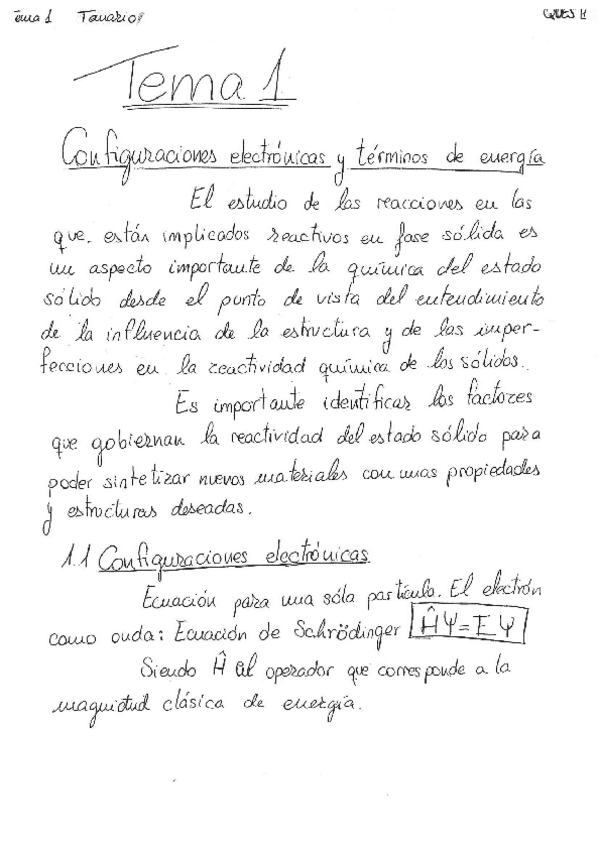 Tema 1
QUES II
Tema 1
Configuraciones electrónicas y términos de energía
El estudio de las reacciones en las
que, están implicados reactivos en fase sólida es
un aspecto importante de la química del estado
sólido desde el punto de vista del entendimiento
de la influencia de la estructura y de las imper-
fecciones en la reactividad química de los sólidos.
Es importante identificar los factores
que gobiernan la reactividad del estado sólido para
poder sintetizar nuevos materiales con unas propiedades
y estructuras deseadas.
1.1 Configuraciones electrónicas
Ecuación para una sóla partícula. El electrón
como onda: Ecuación de Schrödinger ĤΨ=EΨ
Siendo Ĥ al operador que corresponde a la
magnitud clásica de energía.